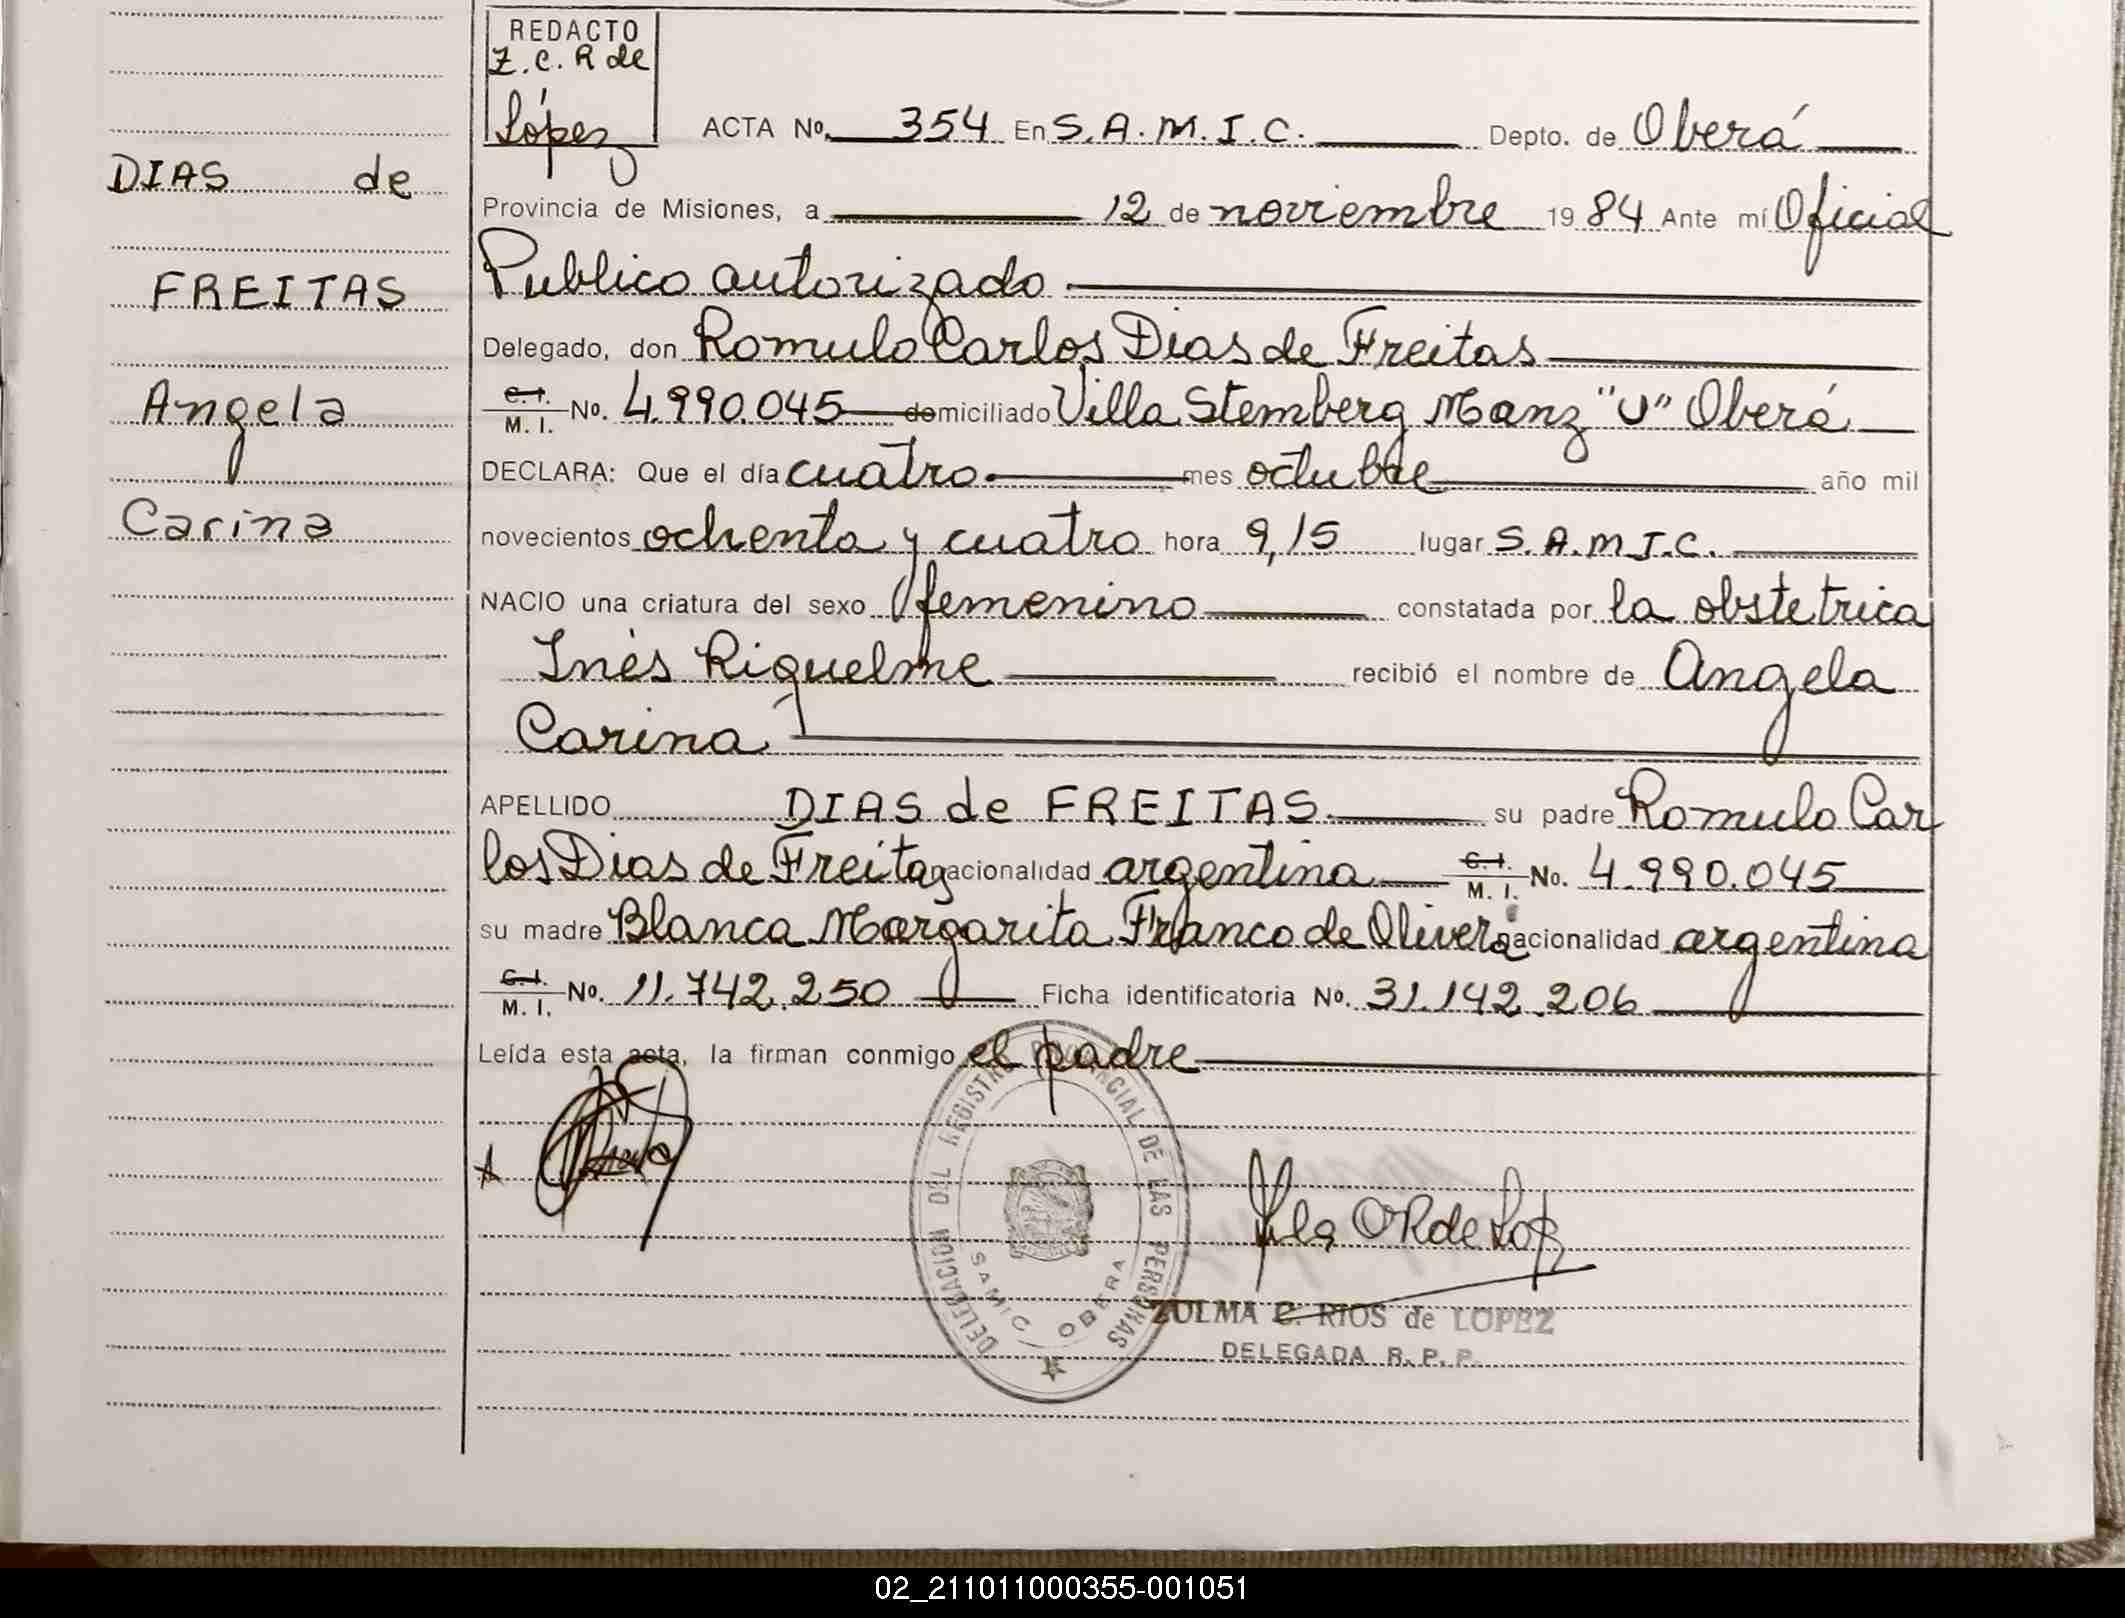 REDACTO
Z. C. R de
López
ACTA No. 354 En S. A. M. I. C. Depto. de Oberá
DIAS de
FREITAS
Angela
Carina
Provincia de Misiones, a 12 de noviembre 19 84 Ante mí Oficial
Publico autorizado
Delegado, don Romulo Carlos Dias de Freitas
C. I. M. I. No. 4.990.045 domiciliado Villa Stemberg Manz "U" Oberá
DECLARA: Que el día cuatro mes octubre año mil
novecientos ochenta y cuatro hora 9,15 lugar S. A. M I. C.
NACIO una criatura del sexo femenino constatada por la obstetrica
Inès Riquelme recibió el nombre de Angela
Carina
APELLIDO DIAS de FREITAS su padre Romulo Car
los Dias de Freitas nacionalidad argentina C. I. M. I. No. 4.990.045
su madre Blanca Margarita Franco de Olivera nacionalidad argentina
C. I. M. I. No. 11.742.250 Ficha identificatoria No. 31.142.206
Leída esta acta, la firman conmigo el padre
DELEGACION DEL REGISTRO PROVINCIAL DE LAS PERSONAS
SAMIC OBERA
ZULMA C. RIOS de LOPEZ
DELEGADA R. P. P.
02_211011000355-001051